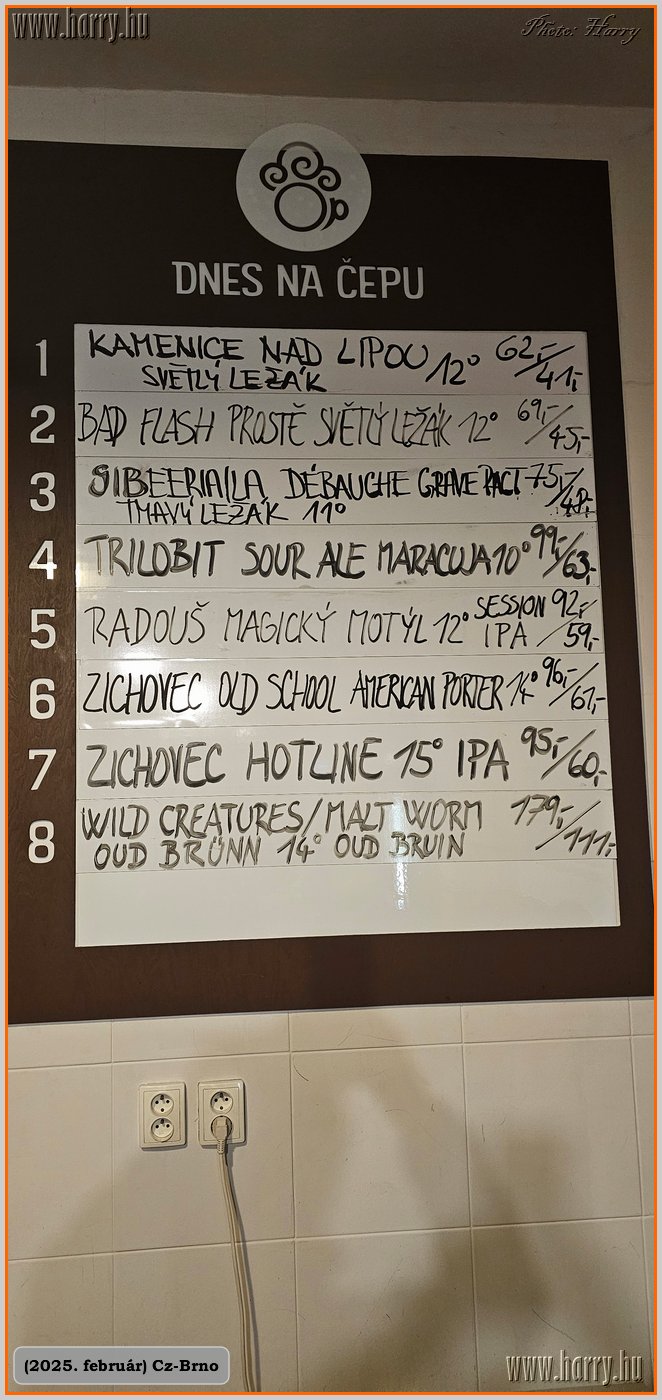 www.harry.hu
Photo: Harry
DNES NA ČEPU
1 KAMENICE NAD LIPOU 12° 62,-/41,-
SVĚTLÝ LEŽÁK
2 BAD FLASH PROSTĚ SVĚTLÝ LEŽÁK 12° 69,-/45,-
3 SIBEERIA/LA DÉBAUCHE GRAVE PACT 75,-/
TMAVÝ LEŽÁK 11°
4 TRILOBIT SOUR ALE MARACUJA 10° 99,-/63,-
5 RADOUŠ MAGICKÝ MOTÝL 12° SESSION IPA 92,-/59,-
6 ZICHOVEC OLD SCHOOL AMERICAN PORTER 14° 96,-/61,-
7 ZICHOVEC HOTLINE 15° IPA 95,-/60,-
8 WILD CREATURES/MALT WORM 179,-/111,-
OUD BRÜNN 14° OUD BRUIN
(2025. február) Cz-Brno
www.harry.hu